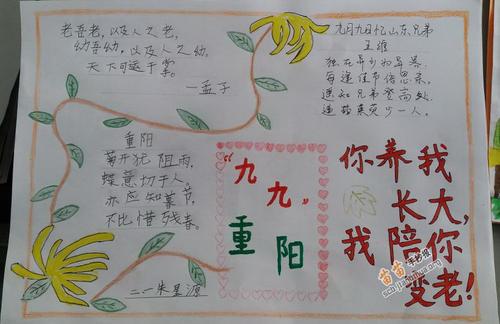 老吾老,以及人之老,
幼吾幼,以及人之幼,
天下可运于掌。
—孟子
九月九日忆山东兄弟
王维
独在异乡为异客,
每逢佳节倍思亲。
遥知兄弟登高处,
遍插茱萸少一人。
重阳
菊开犹阻雨,
蝶意切于人
亦应知暮节,
不比惜残春。
二一朱星源
“九九”
重阳
你养我
长大,
我陪你
变老!
苗苗手抄报